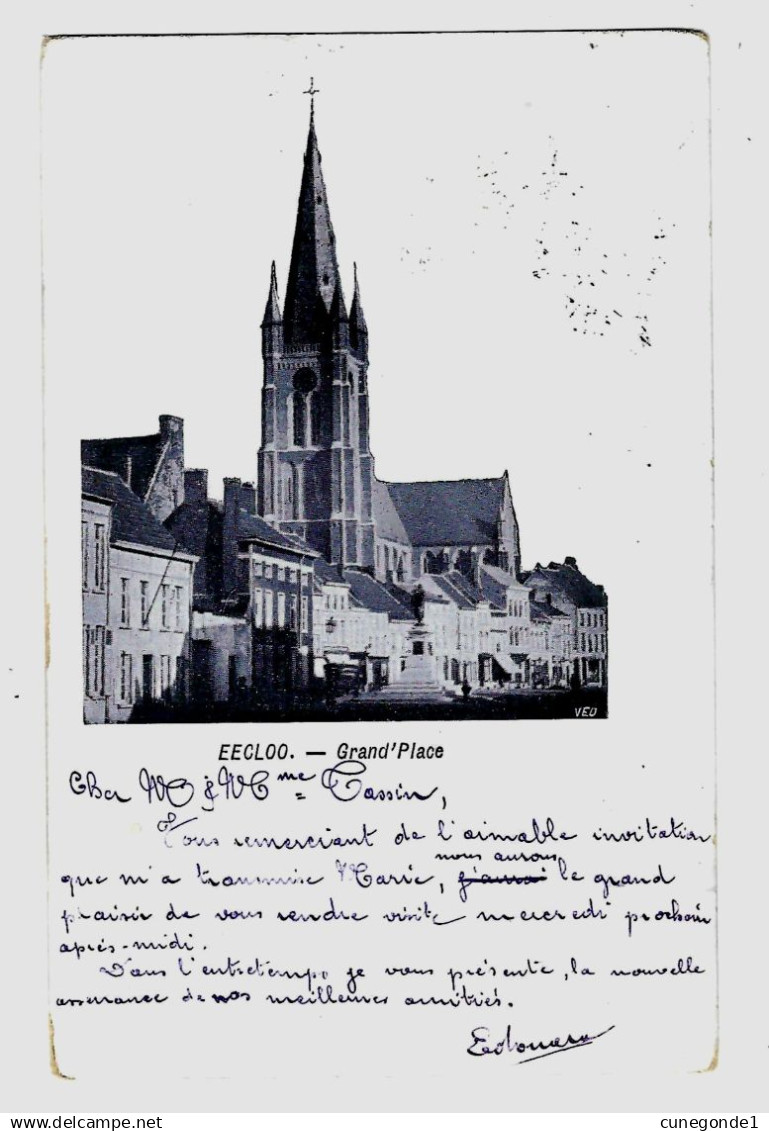 VED
EECLOO. — Grand'Place
Cher M & Mme Tassin,
Vous remerciant de l'aimable invitation
que m'a transmise Marie, nous aurons j'aurai le grand
plaisir de vous rendre visite mercredi prochain
après-midi.
Dans l'entretemps je vous présente, la nouvelle
assurance de nos meilleures amitiés.
Edouard
delcampe.net
cunegonde1